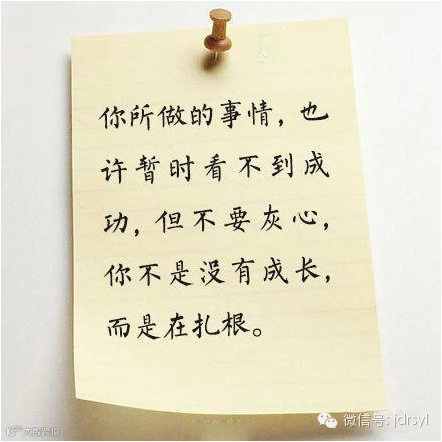 你所做的事情，也
许暂时看不到成
功，但不要灰心，
你不是没有成长，
而是在扎根。
微信号: jdrsyl